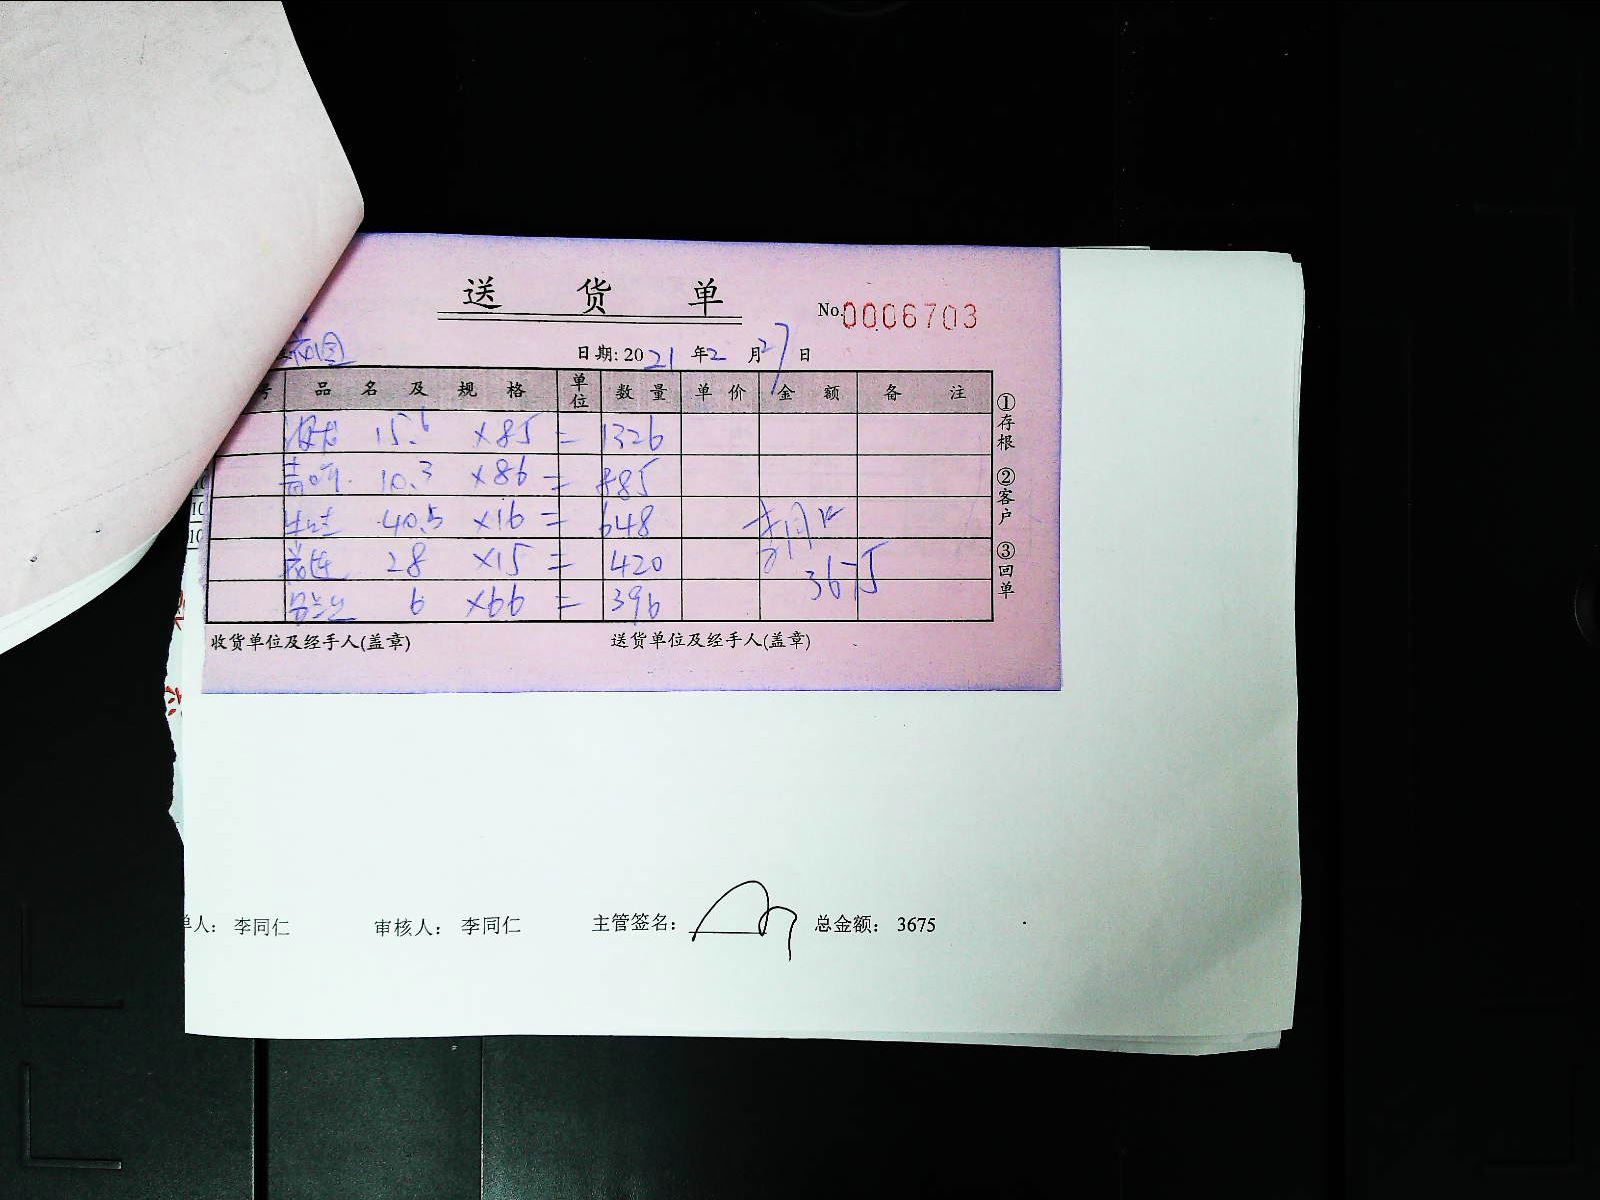 送 货 单
No.0006703
日期: 2021 年 2 月 27 日
号 品 名 及 规 格 单位 数 量 单 价 金 额 备 注
15.6 ×85 = 1326
10.3 ×86 = 885
40.5 ×16 = 648
花连 28 ×15 = 420
6 ×66 = 396
3675
①存根 ②客户 ③回单
收货单位及经手人(盖章) 送货单位及经手人(盖章)
单人: 李同仁 审核人: 李同仁 主管签名: 总金额: 3675